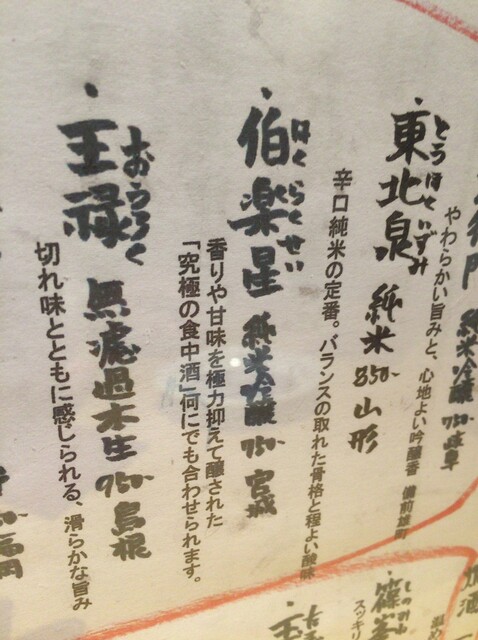 門 純米吟醸 750- 岐阜
やわらかい旨みと、心地よい吟醸香 備前雄町
東北泉 純米 850- 山形
とうほくいずみ
辛口純米の定番。バランスの取れた骨格と程よい酸味
伯楽星 純米吟醸 750- 宮城
はくらくせい
香りや甘味を極力抑えて醸された
「究極の食中酒」何にでも合わせられます。
王禄 無濾過本生 950- 島根
おうろく
切れ味とともに感じられる、滑らかな旨み
福岡
加酒
篠峯
しのみね
スッキリ